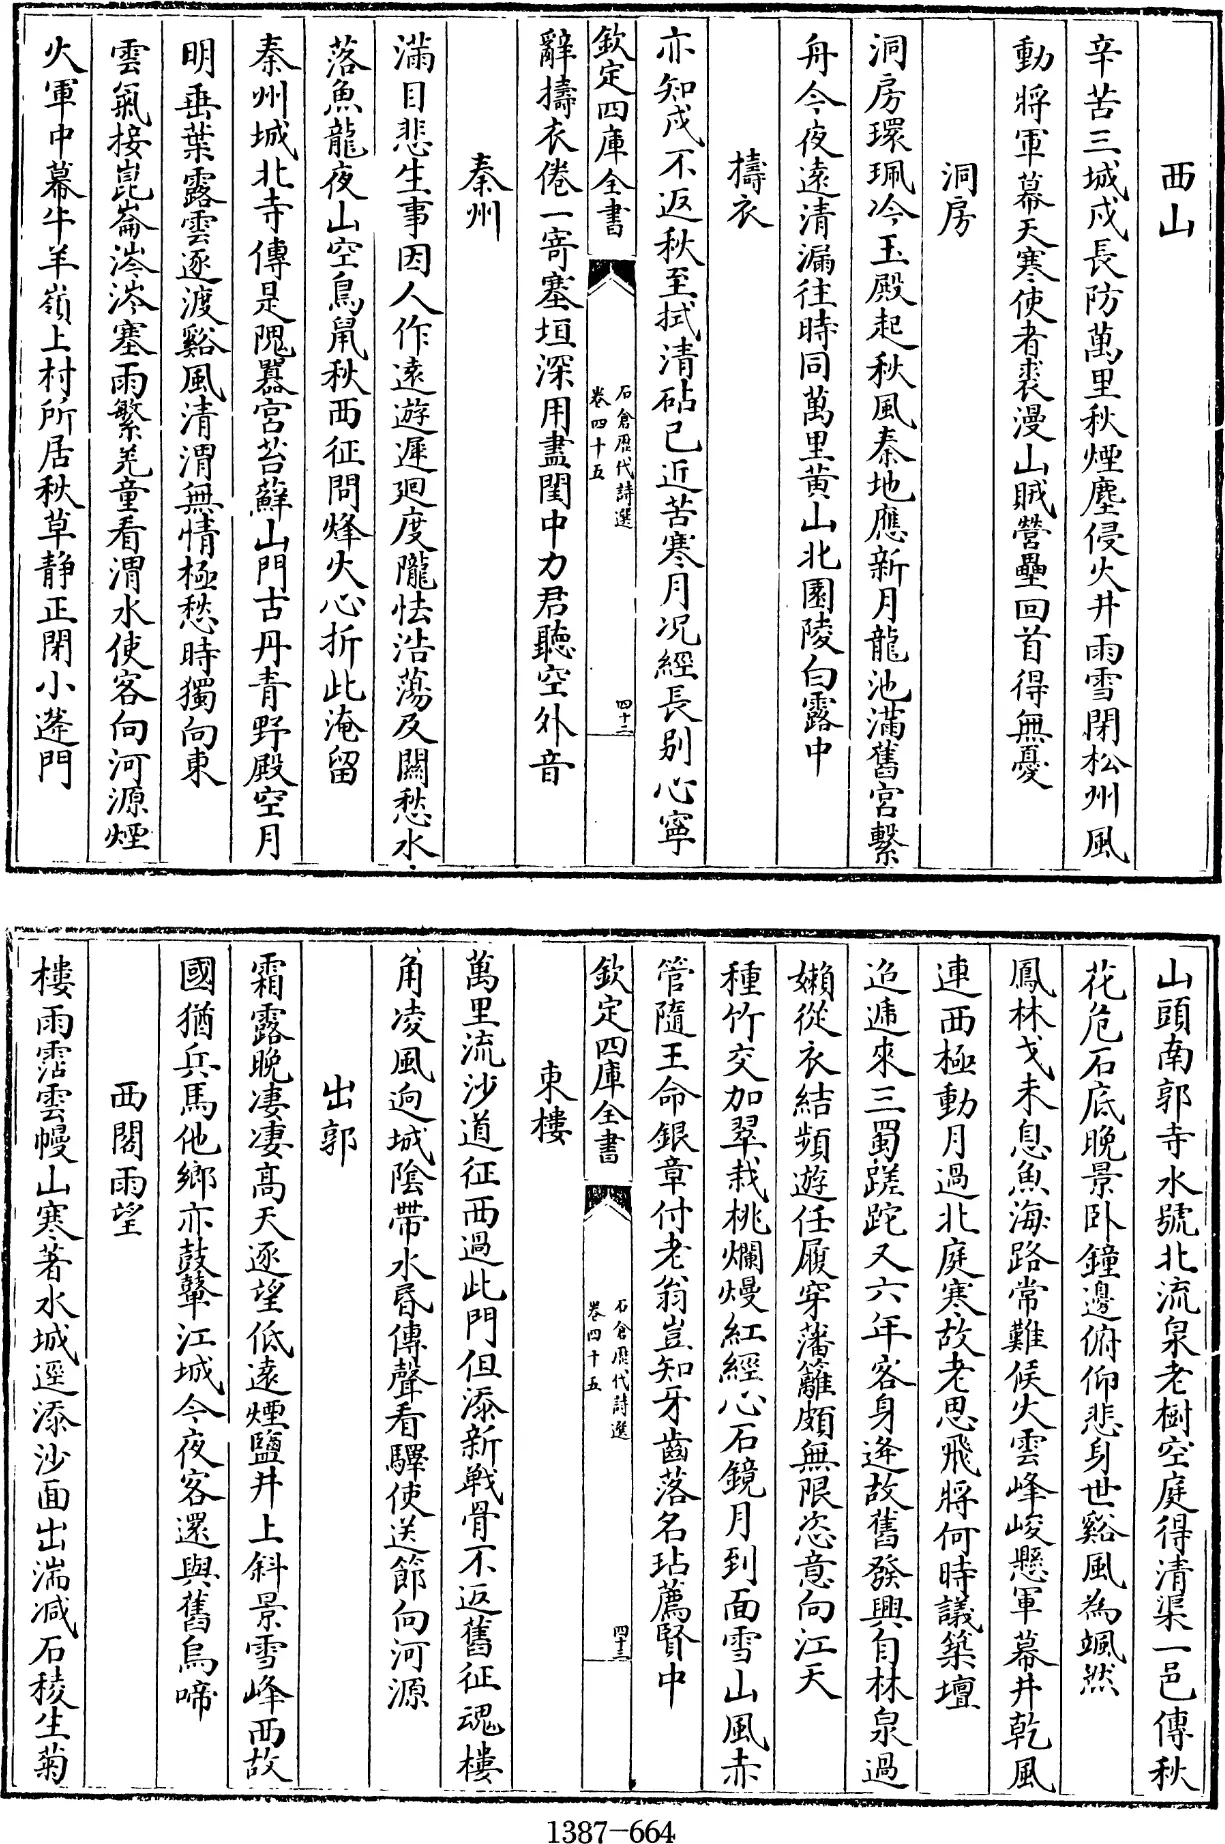 西山
辛苦三城戍長防萬里秋煙塵侵火井雨雪閉松州風
動將軍幕天寒使者裘漫山賊營壘回首得無憂
洞房
洞房環珮冷玉殿起秋風秦地應新月龍池滿舊宮繫
舟今夜遠清漏往時同萬里黄山北園陵白露中
擣衣
亦知戍不返秋至拭清砧已近苦寒月況經長别心寧
欽定四庫全書
石倉歴代詩選
卷四十五
四十二
辭擣衣倦一寄塞垣深用盡閨中力君聽空外音
秦州
滿目悲生事因人作遠遊遲廻度隴怯浩蕩及關愁水
落魚龍夜山空鳥鼠秋西征問烽火心折此淹留
秦州城北寺傳是隗囂宮苔蘚山門古丹青野殿空月
明垂葉露雲逐渡谿風清渭無情極愁時獨向東
雲氣接崑崙涔涔塞雨繁羌童看渭水使客向河源煙
火軍中幕牛羊嶺上村所居秋草静正閉小蓬門
山頭南郭寺水號北流泉老樹空庭得清渠一邑傳秋
花危石底晚景卧鐘邊俯仰悲身世谿風為颯然
鳳林戈未息魚海路常難候火雲峰峻懸軍幕井乾風
連西極動月過北庭寒故老思飛將何時議築壇
迢遞來三蜀蹉跎又六年客身逢故舊發興自林泉過
嬾從衣結頻遊任履穿藩籬頗無限恣意向江天
種竹交加翠栽桃爛熳紅經心石鏡月到面雪山風赤
管隨王命銀章付老翁豈知牙齒落名玷薦賢中
欽定四庫全書
石倉歴代詩選
卷四十五
四十三
東樓
萬里流沙道征西過此門但添新戰骨不返舊征魂樓
角凌風逈城陰帶水昏傳聲看驛使送節向河源
出郭
霜露晚凄凄高天逐望低遠煙鹽井上斜景雪峰西故
國猶兵馬他鄉亦鼓鼙江城今夜客還與舊烏啼
西閣雨望
樓雨霑雲幔山寒著水城逕添沙面出湍减石稜生菊
1387-664